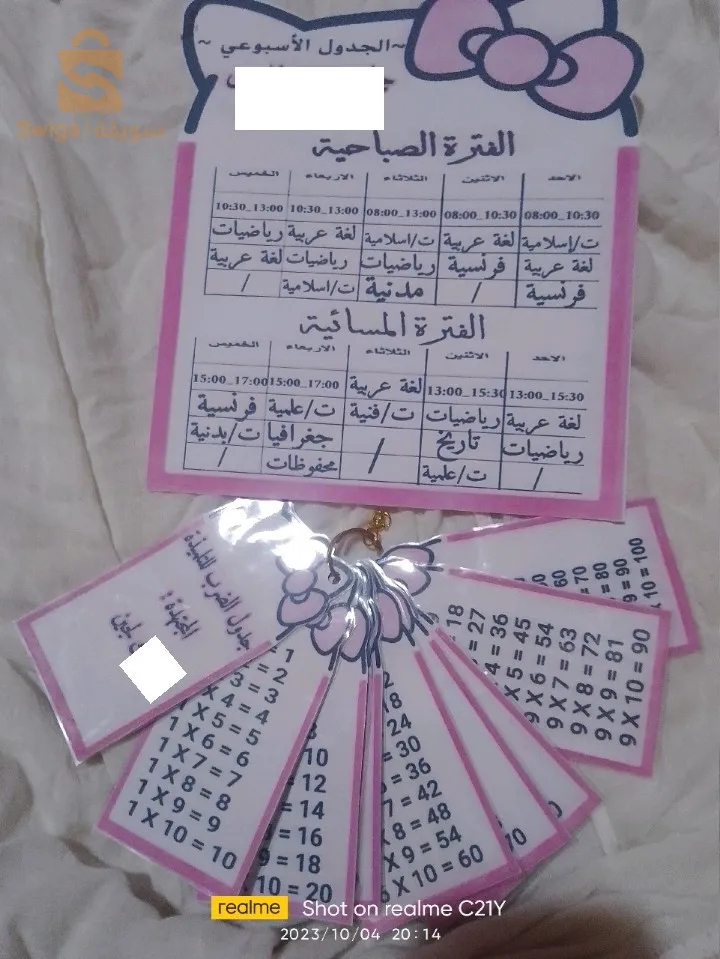 ~الجدول الأسبوعي ~
الفترة الصباحية
الاحد الاثنين الثلاثاء الاربعاء الخميس
08:00_10:30 08:00_10:30 08:00_13:00 10:30_13:00 10:30_13:00
ت/إسلامية لغة عربية ت/اسلامية لغة عربية رياضيات
لغة عربية فرنسية رياضيات رياضيات لغة عربية
فرنسية / مدنية ت/اسلامية /
الفترة المسائية
الاحد الاثنين الثلاثاء الاربعاء الخميس
13:00_15:30 13:00_15:30 لغة عربية 15:00_17:00 15:00_17:00
لغة عربية رياضيات ت/فنية ت/علمية فرنسية
رياضيات تاريخ / جغرافيا ت/بدنية
/ ت/علمية محفوظات /
جدول الضرب للتلميذة
المجتهدة :
= 1
= 2
3 = 3
X 4 = 4
1 X 5 = 5
1 X 6 = 6
1 X 7 = 7
1 X 8 = 8
1 X 9 = 9
1 X 10 = 10
10
= 12
= 14
= 16
9 = 18
10 = 20
18
24
= 30
= 36
7 = 42
X 8 = 48
X 9 = 54
6 X 10 = 60
70
18
= 27
4 = 36
X 5 = 45
9 X 6 = 54
9 X 7 = 63
9 X 8 = 72
9 X 9 = 81
9 X 10 = 90
60
= 70
= 80
9 = 90
X 10 = 100
Swiga سويقة
realme Shot on realme C21Y
2023/10/04 20:14